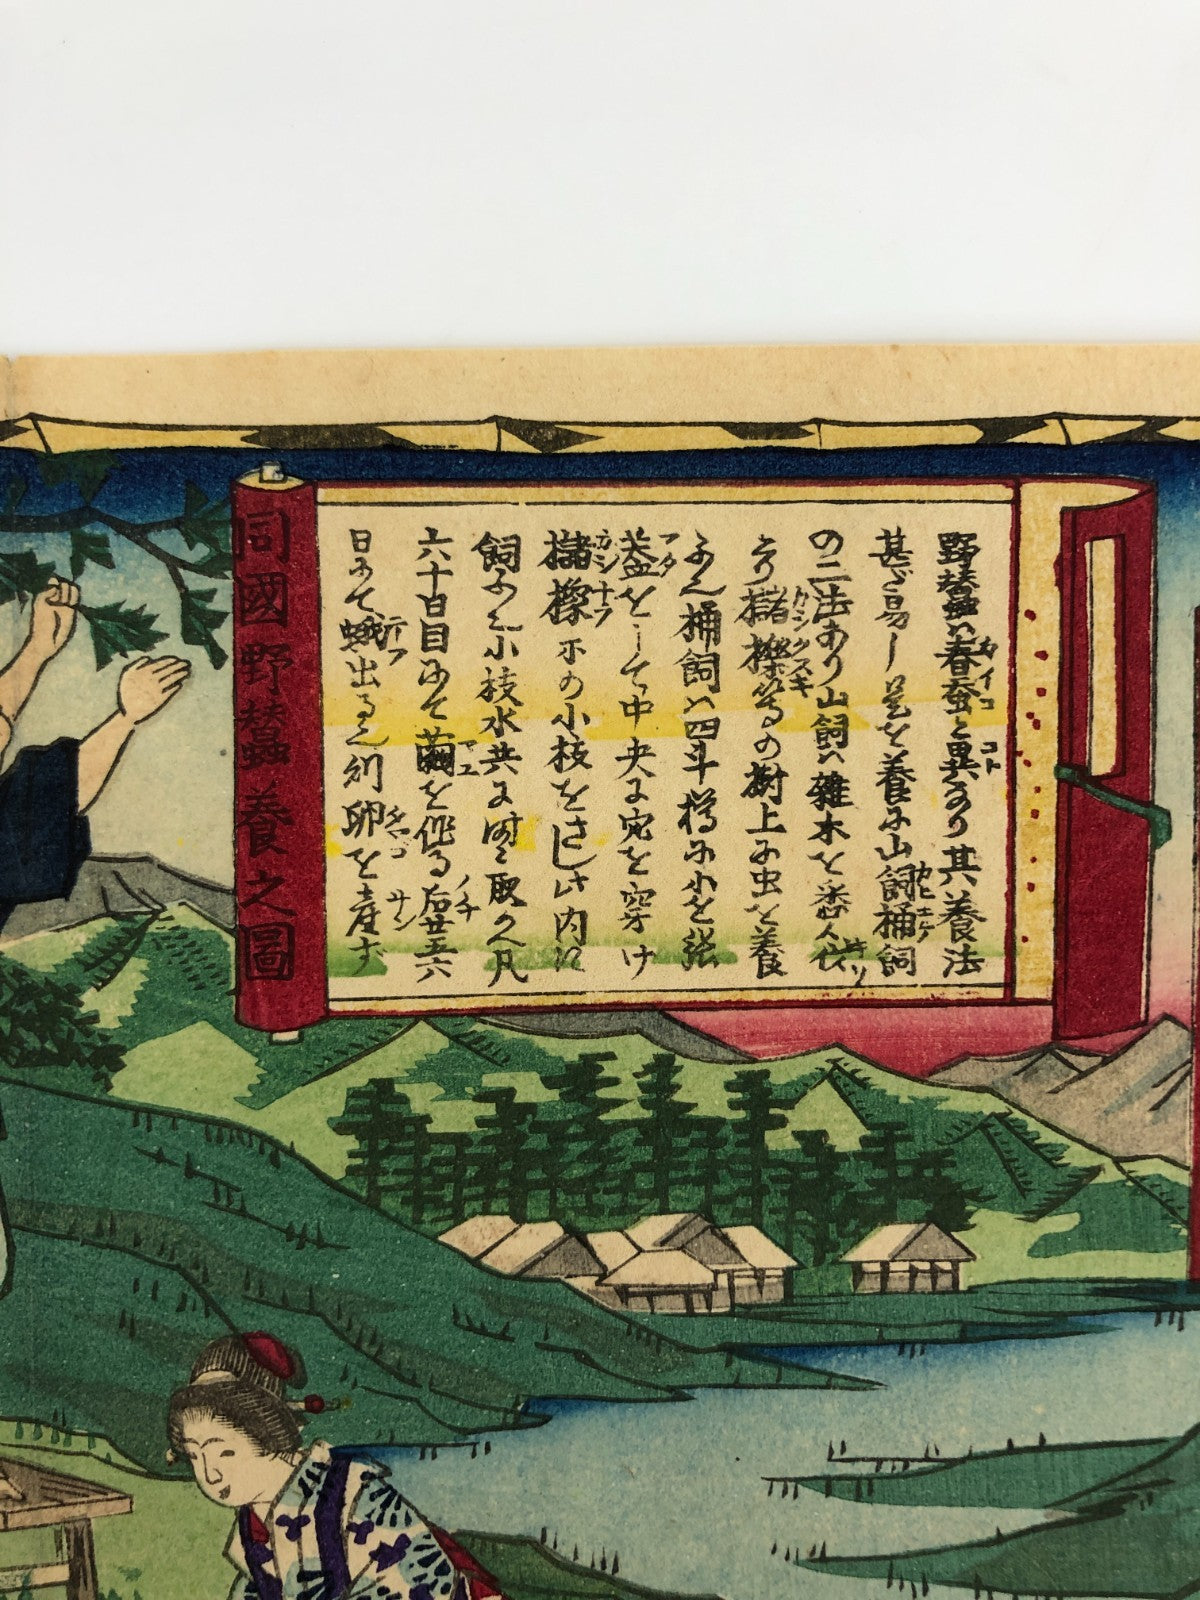 野蠶ハ春蚕と異なり其養法
甚だ易し是を養ふ山飼桶飼
の二法あり山飼ハ雜木を悉く伐
とり櫧櫟等の樹上に虫を養
ふ桶飼ハ四斗樽に水を張
蓋をして中央に穴を穿け
櫧櫟ホの小枝をさし此内に
飼ふ小枝水共に時々取かへ凡
六十日目にて繭を作る后廿五六
日にて蛾出る則卵を産す
同國野蠶養之圖